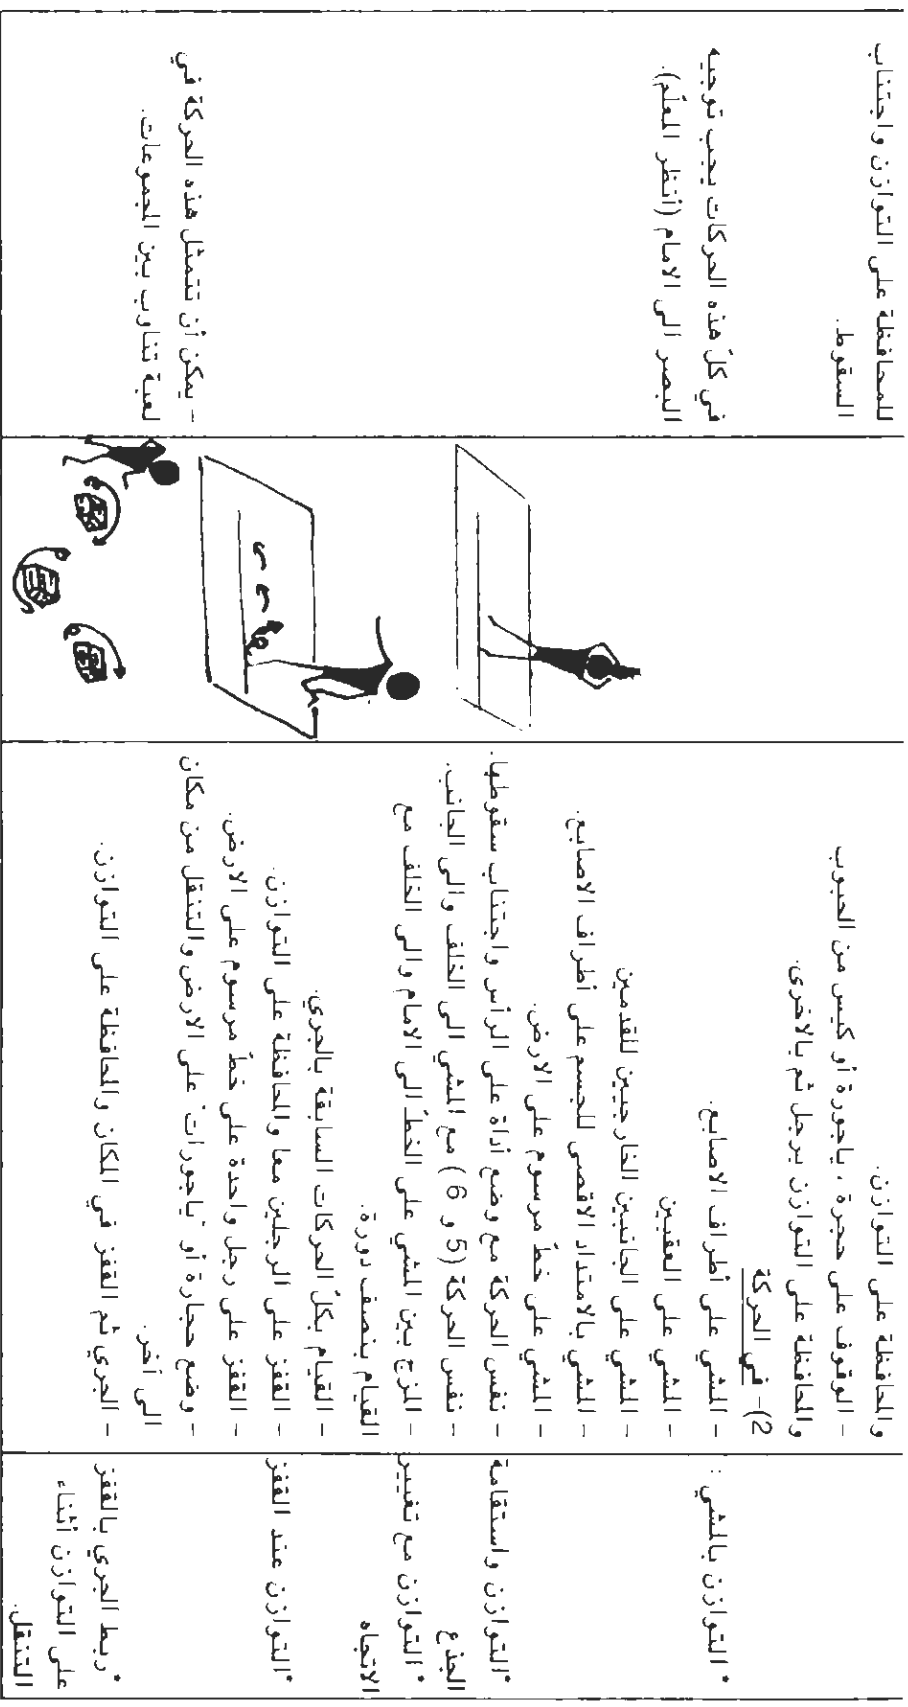 * التوازن بالمشي :
* التوازن واستقامة
الجذع
* التوازن مع تغيير
الاتجاه
* التوازن عند القفز
* ربط الجري بالقفز
على التوازن أثناء
التنقل.
والمحافظة على التوازن.
- الوقوف على حجرة ، ياجورة أو كيس من الحبوب
والمحافظة على التوازن برجل ثم بالاخرى.
2)- في الحركة
- المشي على أطراف الاصابع.
- المشي على العقبين
- المشي على الجانبين الخارجيين للقدمين
- المشي بالامتداد الاقصى للجسم على أطراف الاصابع.
- المشي على خطّ مرسوم على الارض.
- نفس الحركة مع وضع أداة على الرأس واجتناب سقوطها.
- نفس الحركة (5 و 6) مع المشي الى الخلف والى الجانب.
- المزج بين المشي على الخطّ الى الامام والى الخلف مع
القيام بنصف دورة.
- القيام بكلّ الحركات السابقة بالجري.
- القفز على الرجلين معا والمحافظة على التوازن.
- القفز على رجل واحدة على خطّ مرسوم على الارض.
- وضع حجارة أو "ياجورات" على الارض والتنقل من مكان
الى آخر.
- الجري ثم القفز في المكان والمحافظة على التوازن.
للمحافظة على التوازن واجتناب
السقوط.
في كلّ هذه الحركات يجب توجيه
البصر الى الامام (أنظر المعلّم).
- يمكن أن تتمثل هذه الحركة في
لعبة تناوب بين المجموعات.